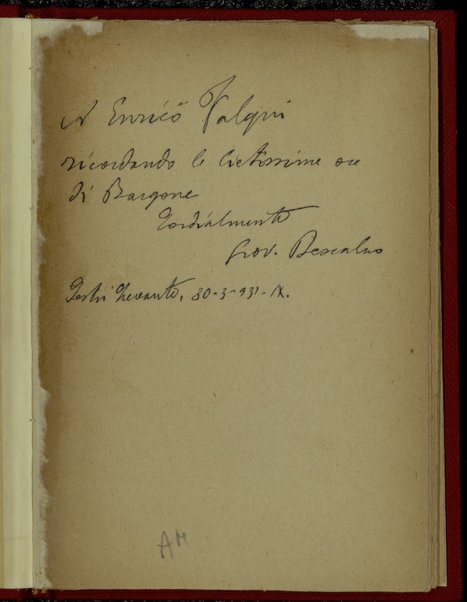 A Enrico Falqui
ricordando le lietissime ore
di Bargone
Cordialmente
Giov. Descalzo
Sestri Levante, 30-3-931-IX.
AM